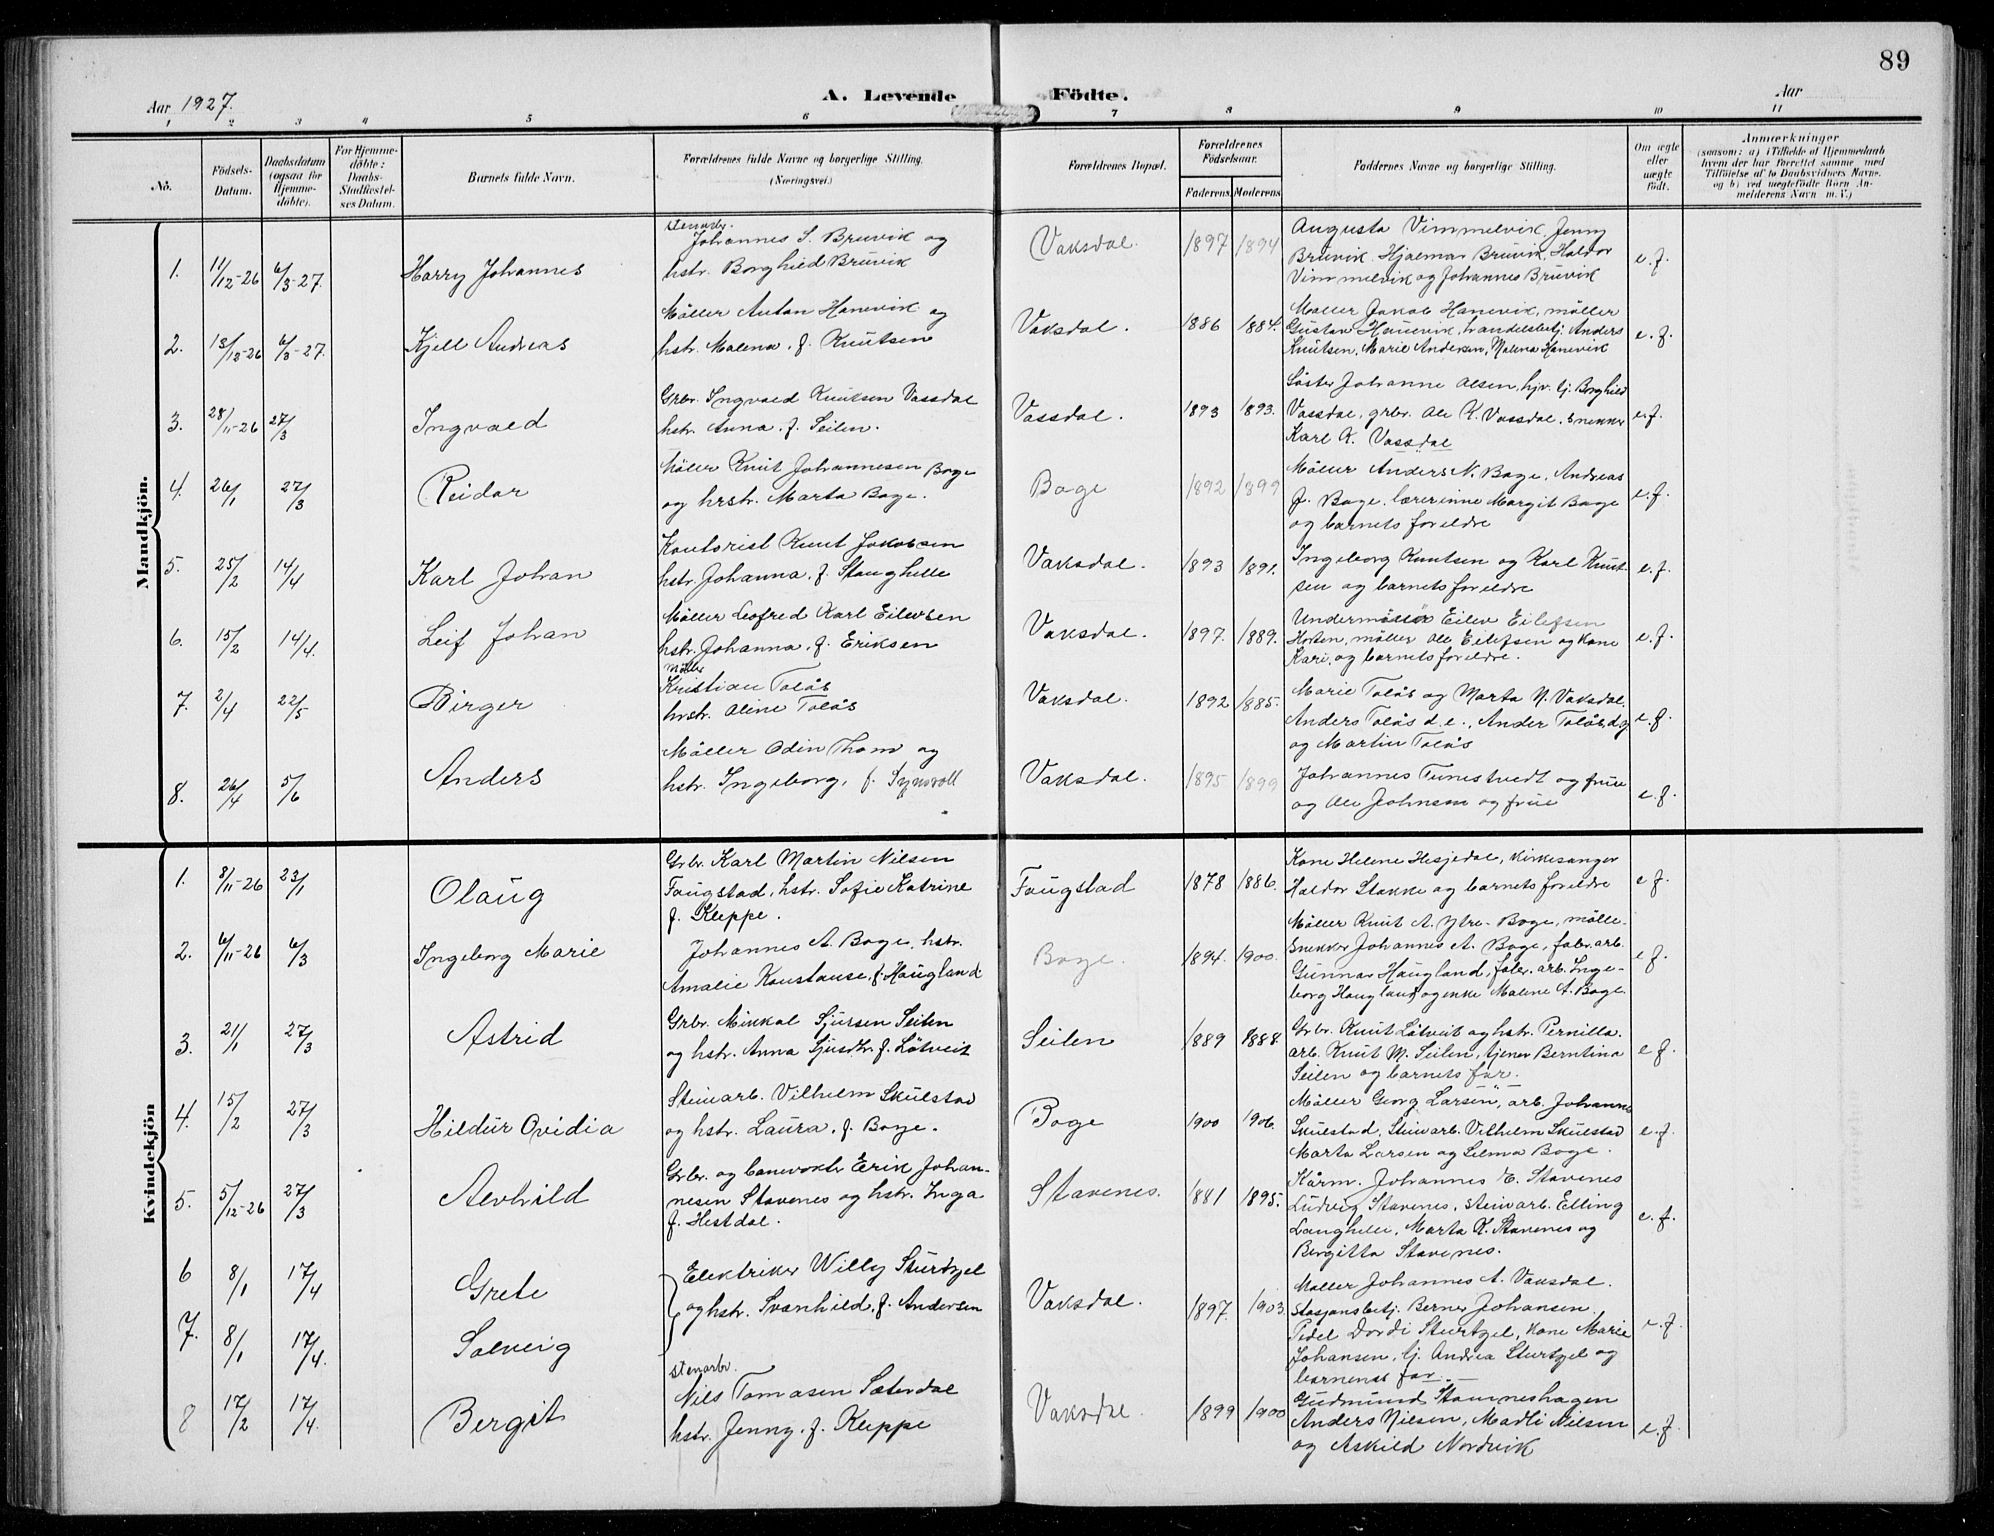 89
Aar 1927.
A. Levende Födte.
Aar
1 2 3 4 5 6 7 8 9 10 11
No.
Födsels-Datum.
Daabsdatum (ogsaa for Hjemme-döbte).
For Hjemme-döbte: Daabs-Stadfæstel-ses Datum.
Barnets fulde Navn.
Forældrenes fulde Navne og borgerlige Stilling.
(Næringsvei.)
Forældrenes Bopæl.
Forældrenes Födselsaar.
Faderens. Moderens.
Faddernes Navne og borgerlige Stilling.
Om ægte eller uægte födt.
Anmærkninger
(saasom: a) i Tilfælde af Hjemmedaab
hvem der har forrettet samme, med
Tilföielse af to Daabsvidners Navne.
og b) ved uægtefödte Börn An-
melderens Navn m. V.)
Mandkjön.
stenarbr.
1. 11/12-26 6/3-27. Harry Johannes Johannes S. Bruvik og
hstr. Borghild Bruvik
Vaksdal. 1897 1894
Augusta Vimmelvik, Jenny
Bruvik. Hjalmar Bruvik, Haldor
Vimmelvik og Johannes Bruvik
e.f.
2. 13/12-26 6/3-27. Kjell Andreas
Möller Anton Hanevik og
hstr. Malena, f. Knutsen
Vaksdal. 1886 1884.
Möller Jakob Hanevik, möller
Gustav Hanevik, handelsbetj. Anders
Knutsen, Marie Andersen, Malena Hanevik
e.f.
3. 28/11-26 27/3 Ingvald
Grbr. Ingvald Knutsen Vassdal
hstr. Anna, f. Seilen.
Vassdal. 1893 1893.
Söster Johanne Olsen, hjv. tj. Borghild
Vassdal, grbr. Ole K. Vassdal, snekker
Karl K. Vassdal
e.f.
4. 26/1 27/3 Reidar
Möller Knut Johannesen Boge
og hrstr. Marta Boge.
Boge 1892 1899
Möller Anders N. Boge, Andreas
J. Boge, lærerinne Margit Boge
og barnets foreldre
e.f.
5. 25/2 14/4 Karl Johan
Kontorist Knut Jakobsen
hstr. Johanna, f. Stanghelle
Vaksdal. 1893 1891.
Ingeborg Knutsen og Karl Knut-
sen og barnets foreldre
e.f.
6. 15/2 14/4. Leif Johan
Möller Leofred Karl Eilevsen
hstr. Johanna, f. Eriksen
Vaksdal. 1897. 1889.
Undermassör Eilev Eilefsen
Horten, möller Ole Eilefsen og kone
Kari, og barnets foreldre.
e.f.
7. 2/4 22/5 Birger
Möller
Kristian Tolås
hrstr. Oline Tolås
Vaksdal. 1892 1885.
Marie Tolås og Marta N. Vaksdal.
Anders Tolås d.e., Ander Tolås d.y.
og Martin Tolås
e.f.
8. 26/4 5/6 Anders
Möller Odin Thom og
hstr. Ingeborg, f.
Vaksdal. 1895 1899
Johannes Tunestvedt og frue
og Ole Johnsen og frue
e.f.
Kvindekjön
1. 8/11-26 23/1 Olaug
Grbr. Karl Martin Nilsen
Faugstad, hstr. Sofie Katrine
f. Kleppe.
Faugstad 1878 1886.
Kone Helene Hesjedal, kirkesanger
Haldor Stakke og barnets foreldre
e.f.
2. 6/11-26 6/3 Ingeborg Marie
Johannes A. Boge, hstr.
Amalie Konstanse, f. Haugland
Boge. 1894. 1900.
Möller Knut A. Ytre-Boge, mölle-
snekker Johannes A. Boge, fabr.arb.
Gunnar Haugland, fabr. arb. Inge-
borg Haugland og enke Malene A. Boge.
e.f.
3. 21/1 27/3 Astrid
Grbr. Mikkal Sjursen Seilen
og hstr. Anna Sjursdtr. f. Lötveit
Seilen 1889 1888.
Grbr. Knut Lötveit og hstr. Pernilla.
arb. Knut M. Seilen, tjener Berntina
Seilen og barnets far.
e.f.
4. 15/2 27/3 Hildur Ovidia
Steinarb. Vilhelm Skulstad
og hstr. Laura, f. Boge.
Boge 1900 1906.
Möller Georg Larsen, arb. Johannes
Skulstad, Steinarb. Vilhelm Skulstad
Marta Larsen og Selma Boge.
e.f.
5. 5/12-26 27/3 Alvhild
Grbr. og banevokter Erik Johan-
nesen Stavenes og hstr. Inga
f. Hestdal.
Stavenes. 1881 1895.
Kårm. Johannes E. Stavenes
Ludvig Stavenes, steinarb. Elling
Langhelle, Marta K. Stavenes og
Bergitta Stavenes.
e.f.
6 8/1 17/4 Grete
7. 8/1 17/4. Solveig
Elektriker Willy Sturtzel
og hstr. Svanhild, f. Andersen
Vaksdal. 1897. 1903.
Möller Johannes A. Vaksdal.
Stasjonsbetj. Berner Johansen.
Pedel Dordi Sturtzel, kone Marie
Johansen, tj. Andrea Sturtzel og
barnenes far.
e.f.
8 17/2 17/4. Bergit
stenarbr.
Nils Tomasen Sæterdal
hstr. Jenny, f. Kleppe
Vaksdal 1899 1900
Gudmund Stamneshagen
Anders Nilsen, Madli Nilsen
og Askild Nordvik
e.f.